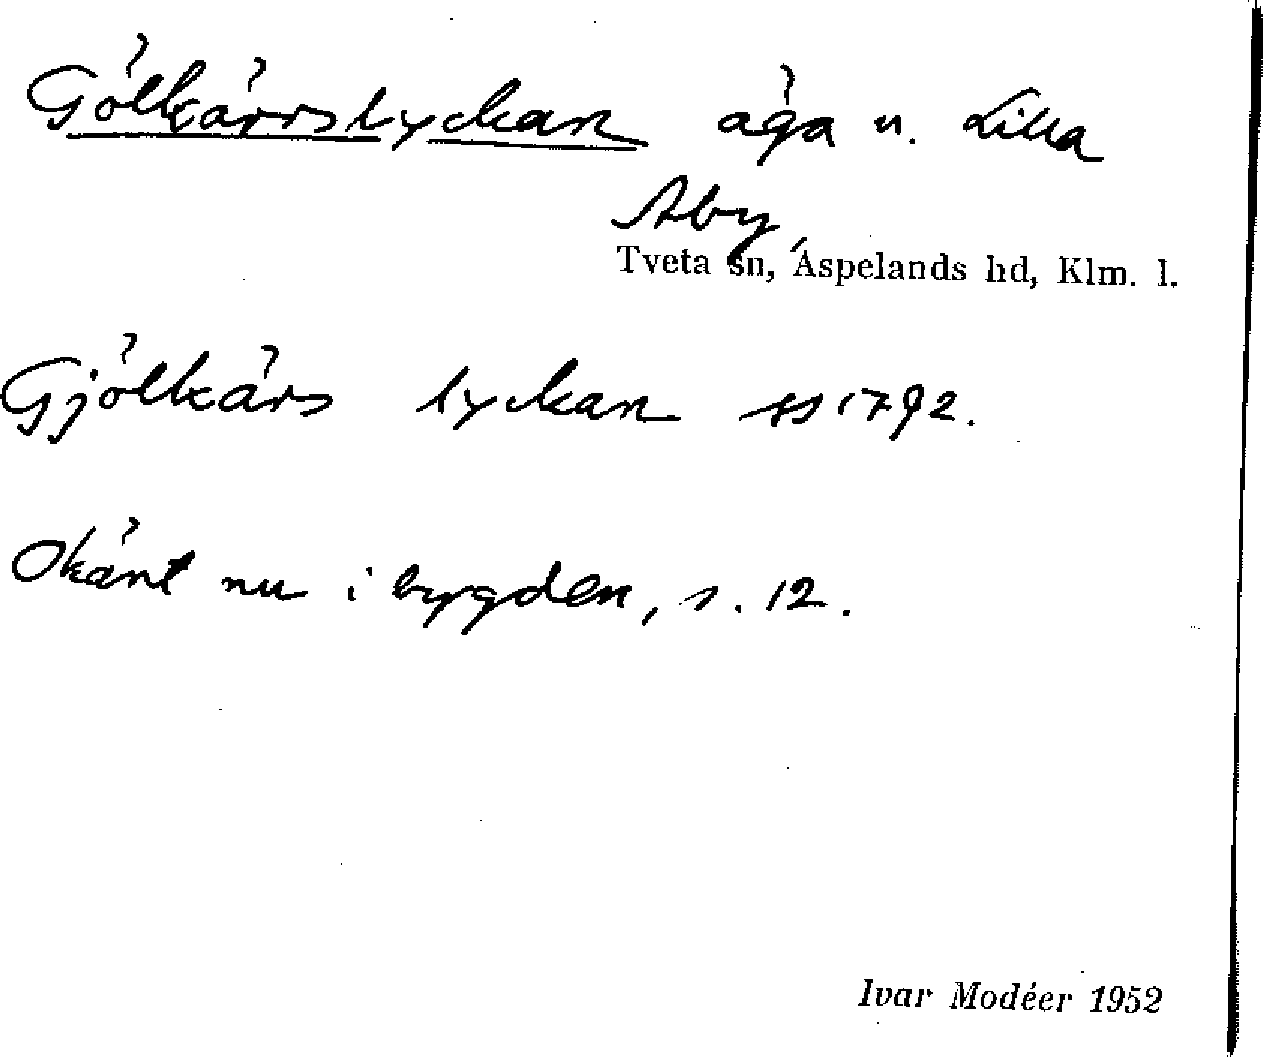 Gölkärrslyckan äga u. Lilla
Åby
Tveta sn, Aspelands hd, Klm. l.
Gjölkärs lyckan ss 1792.
Okänt nu i bygden, s. 12.
Ivar Modéer 1952